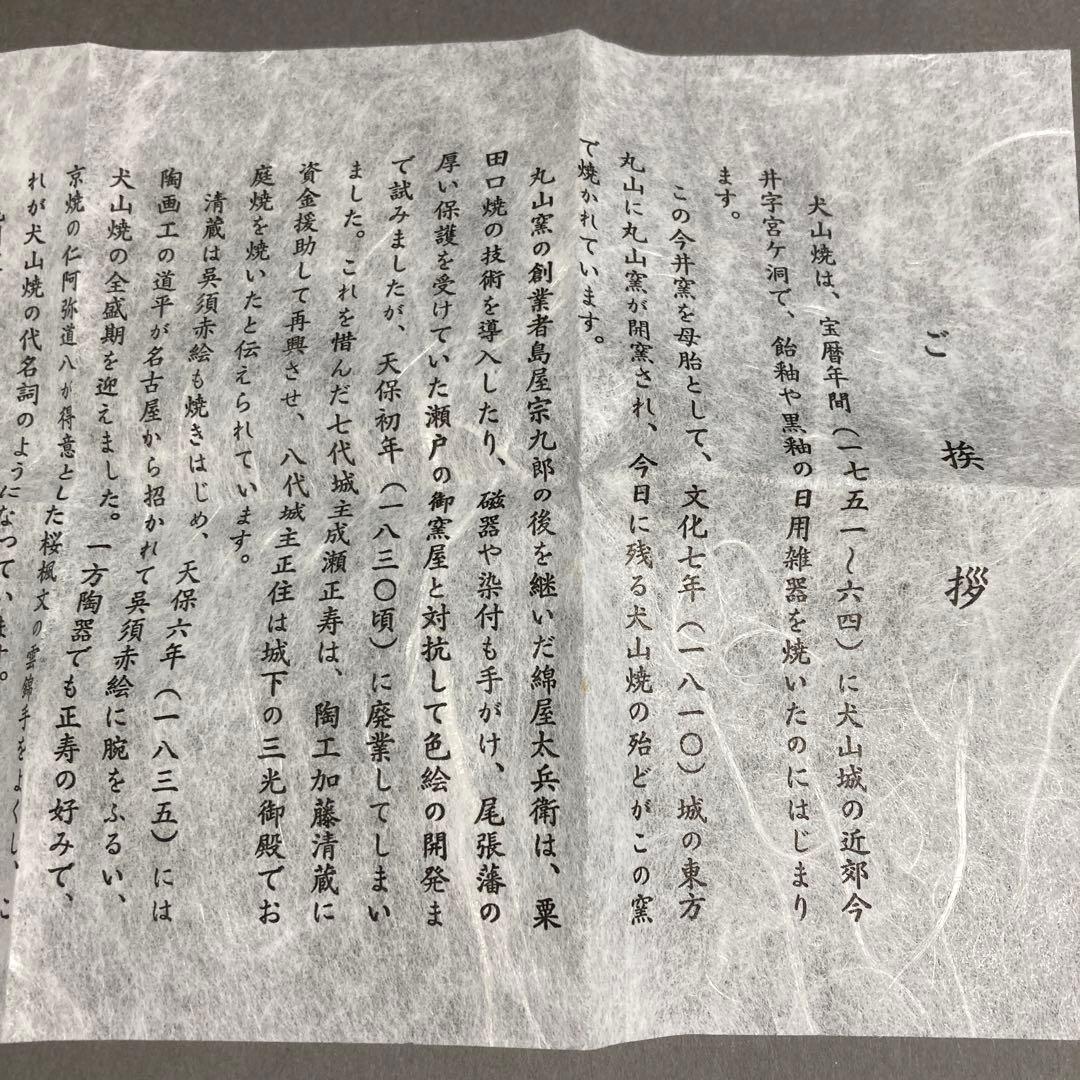 ご挨拶
犬山焼は、宝暦年間（一七五一～六四）に犬山城の近郊今
井字宮ケ洞で、飴釉や黒釉の日用雑器を焼いたのにはじまり
ます。
この今井窯を母胎として、文化七年（一八一〇）城の東方
丸山に丸山窯が開窯され、今日に残る犬山焼の殆どがこの窯
で焼かれています。
丸山窯の創業者島屋宗九郎の後を継いだ綿屋太兵衛は、粟
田口焼の技術を導入したり、磁器や染付も手がけ、尾張藩の
厚い保護を受けていた瀬戸の御窯屋と対抗して色絵の開発ま
で試みましたが、天保初年（一八三〇頃）に廃業してしまい
ました。これを惜んだ七代城主成瀬正寿は、陶工加藤清蔵に
資金援助して再興させ、八代城主正住は城下の三光御殿でお
庭焼を焼いたと伝えられています。
清蔵は呉須赤絵も焼きはじめ、天保六年（一八三五）には
陶画工の道平が名古屋から招かれて呉須赤絵に腕をふるい、
犬山焼の全盛期を迎えました。一方陶器でも正寿の好みで、
京焼の仁阿弥道八が得意とした桜楓文の雲錦手をよくし、こ
れが犬山焼の代名詞のようになっています。